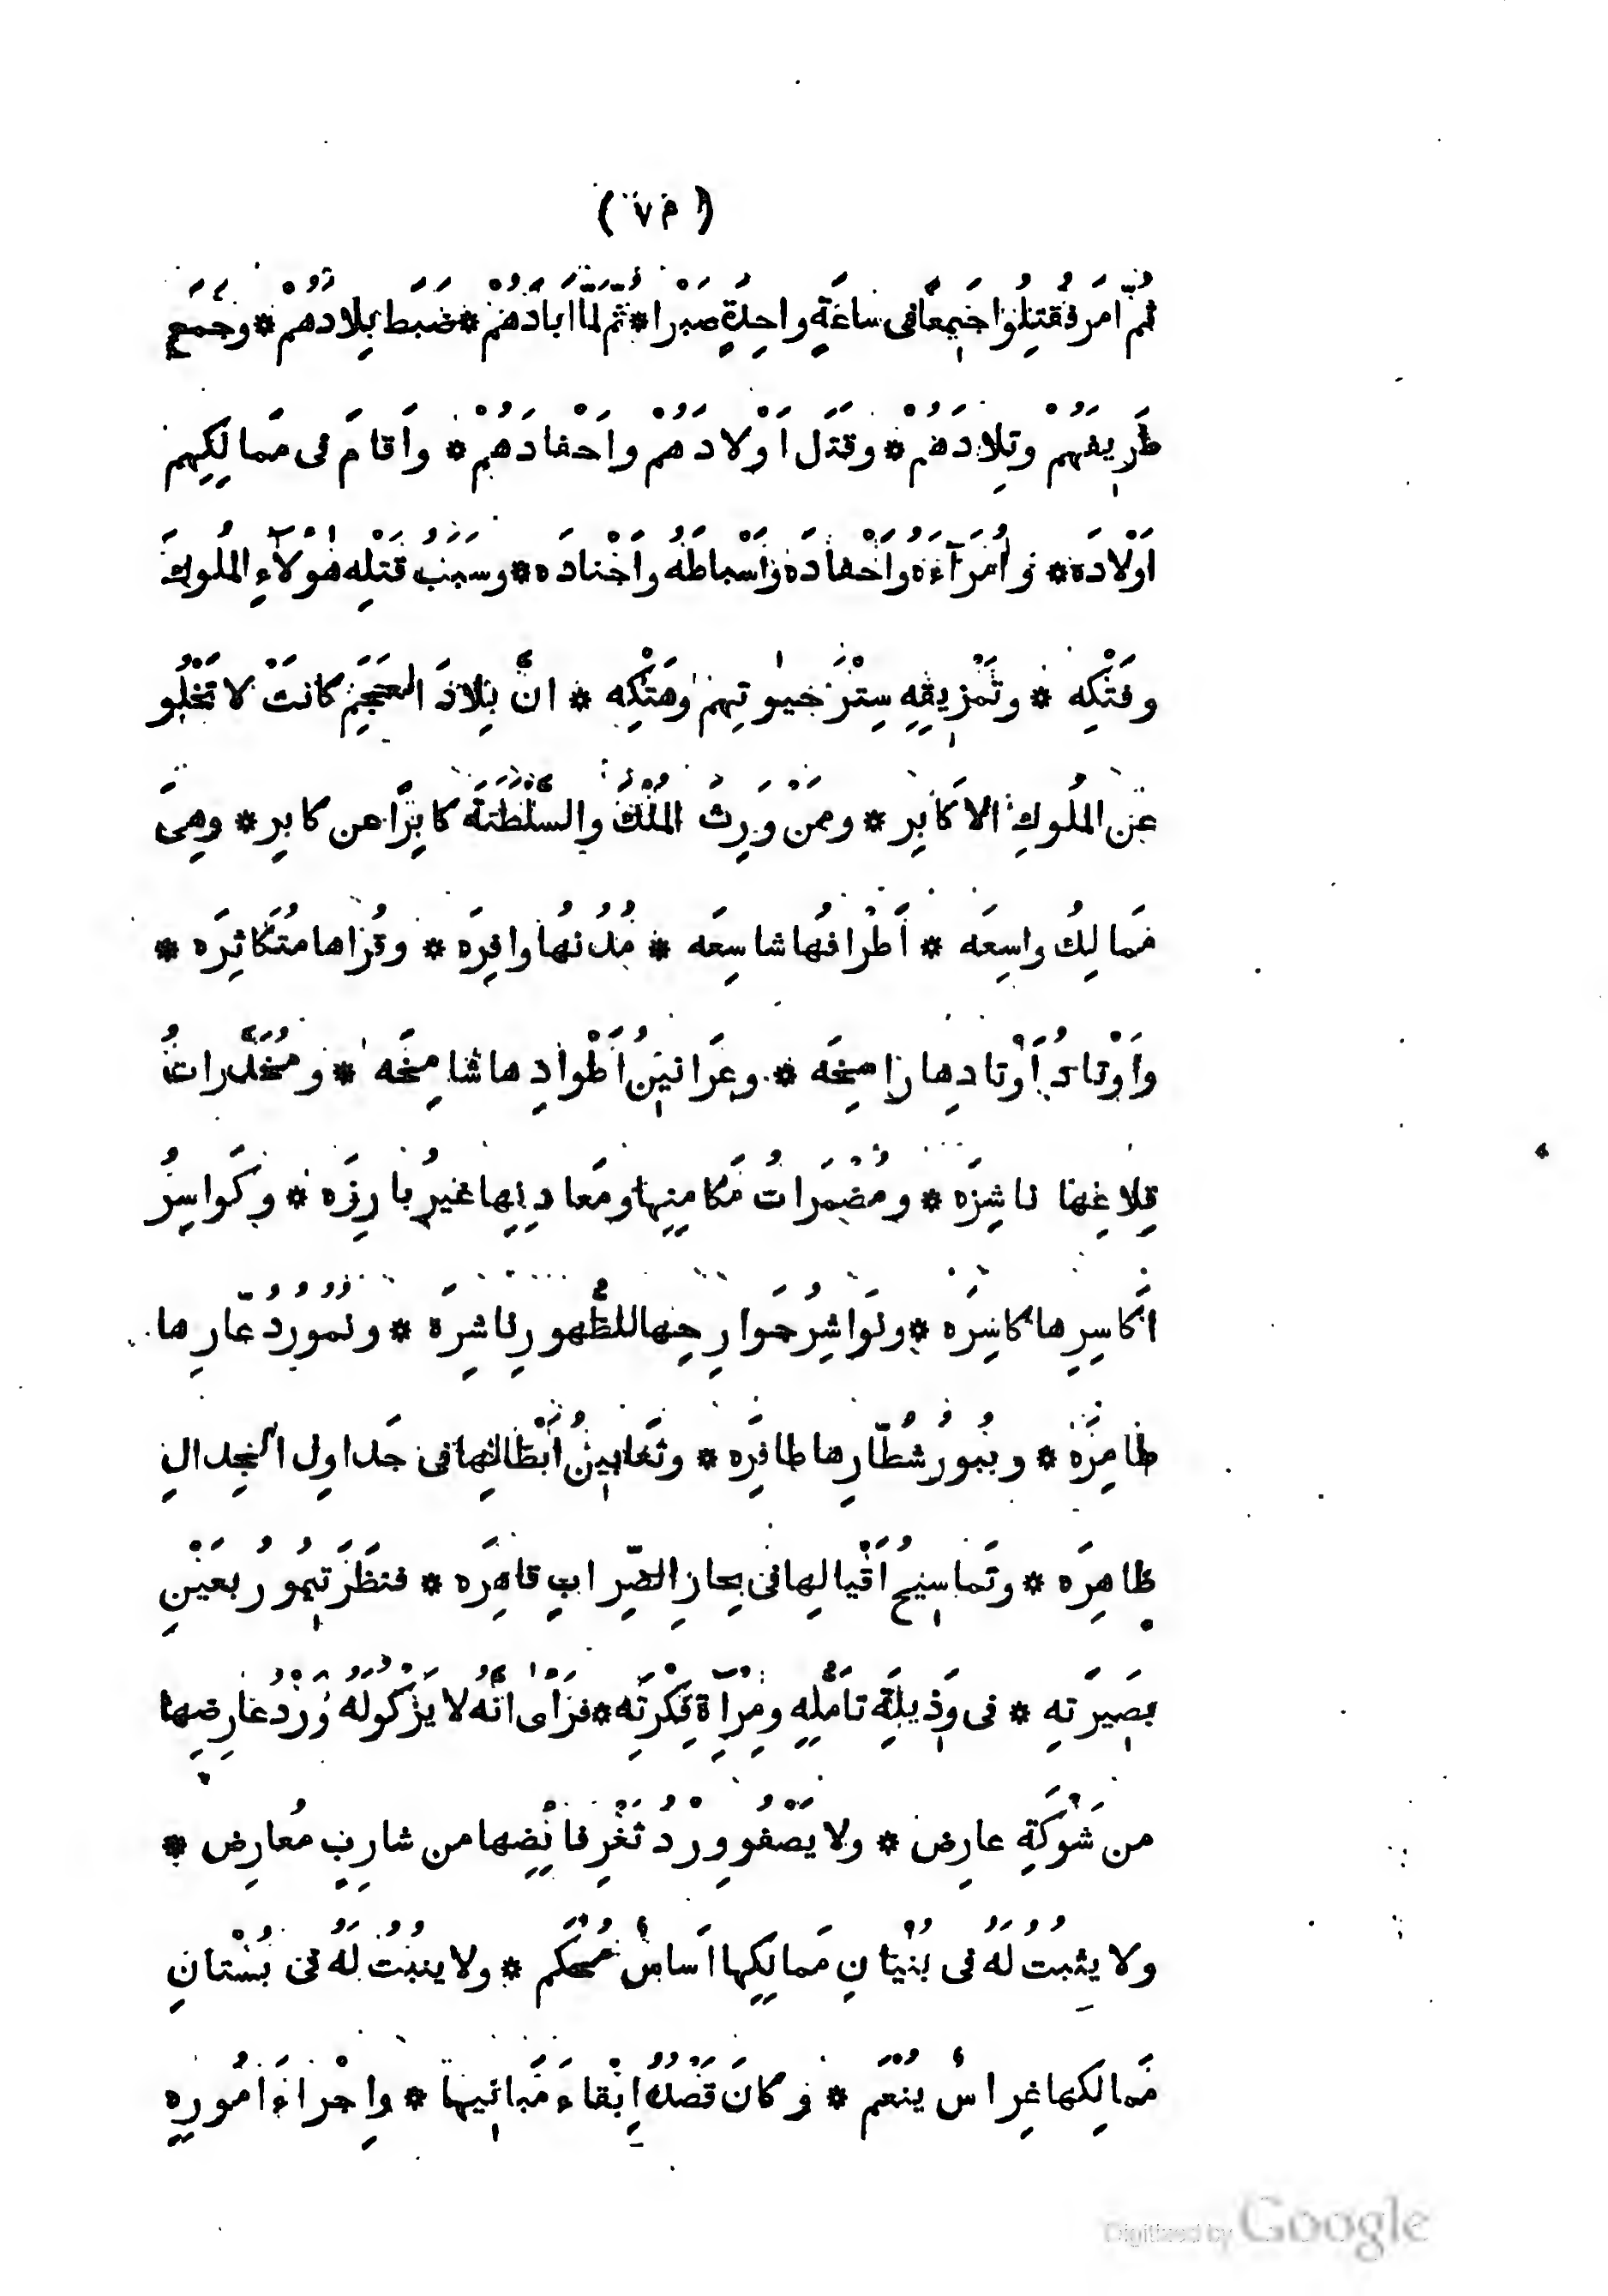 ثُمَّ اَمَرَ فَقُتِلُوا جَمِيعًا فى سَاعَةٍ واحِدَةٍ صَبْرا * ثُمَّ لَمَّا اَبادَهُمْ * ضَبَطَ بِلادَهُمْ * وجَمَعَ
طَرِيفَهُمْ وتِلادَهُمْ * وقَتَلَ اَوْلادَهُمْ واَحْفادَهُمْ * واَقامَ فى مَمالِكِهِم
اَوْلادَهُ * و اُمَرآءَهُ واَحْفادَهُ واَسْباطَهُ واَجْنادَه * وسَبَبُ قَتْلِهِ هٰؤلآءِ المُلوكَ
وفَتْكِه * وتَمْزِيقِهِ سِتْرَ حَيٰوتِهِمْ وهَتْكِه * انَّ بِلادَ العَجَمِ كانَتْ لا تَخْلُو
عَنِ المُلوكِ الاَكابِر * ومَن وَرِثَ المُلْكَ والسَّلْطَنَةَ كابِرًا عن كابِر * وهِىَ
مَمالِكُ واسِعَه * اَطْرافُها شاسِعَه * مُدُنُها وافِرَه * وقُراها مُتَكاثِرَه *
واَوْتادُ اَوْتادِها راسِخَه * وعَرانِينُ اَطْوادِها شامِخَه * ومُخَدَّراتُ
قِلاعِها ناشِزَه * ومُضْمَراتُ مَكامِنِها ومَعادِنِها غيرُ بارِزَه * وكَواسِرُ
اَكاسِرِها كاسِرَه * ونَواشِرُ جَوارِحِها للظُّهورِ ناشِرَة * ونُمورُ دُعّارِها
طامِرَة * وبُبورُ شُطّارِها طافِرَه * وثَعابِينُ اَبْطالِها فى جَداوِلِ الجِدالِ
ظاهِرَه * وتَماسِيحُ اَقْيالِها فى بِحارِ الضِّرابِ قاهِرَه * فنَظَرَ تِيمُورُ بعَيْنِ
بصَيرَتِه * فى وَذِيلَةِ تاَمُّلِهِ ومِرْآةِ فِكْرَتِه * فرَاَى انَّهُ لا يَزْكُو لَهُ وَرْدُ عارِضِها
من شَوْكَةِ عارِض * ولا يَصْفُو وِرْدُ ثَغْرِ فائِضِها من شارِبٍ مُعارِض *
ولا يثبُتُ لَهُ فى بُنْيانِ مَمالِكِها اَساسٌ مُحْكَم * ولا ينبُتُ لَهُ فى بُسْتانِ
مَمالِكِها غِراسٌ يَنعَم * وكانَ قَصْدُهُ اِبْقاءَ مَبانِيها * واِجْراءَ اُمُورِهِ
Digitized by Google